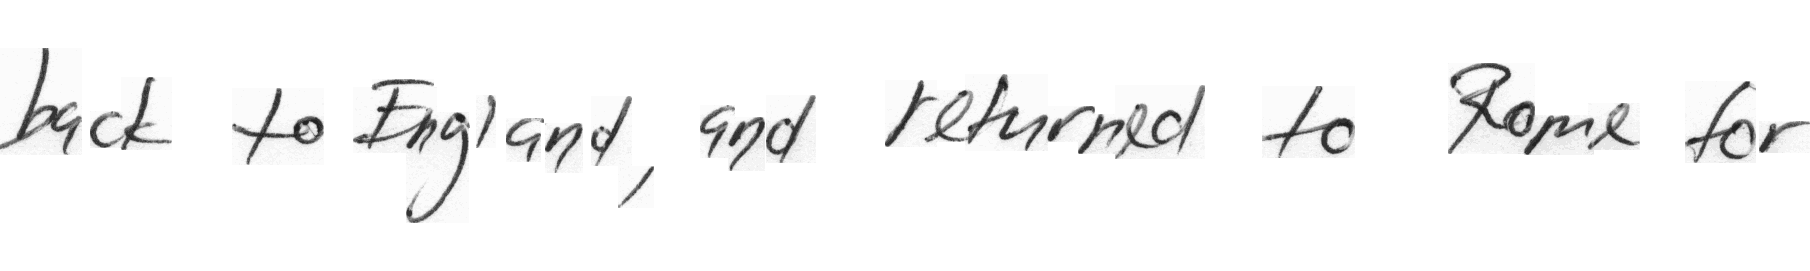 back to England, and returned to Rome for